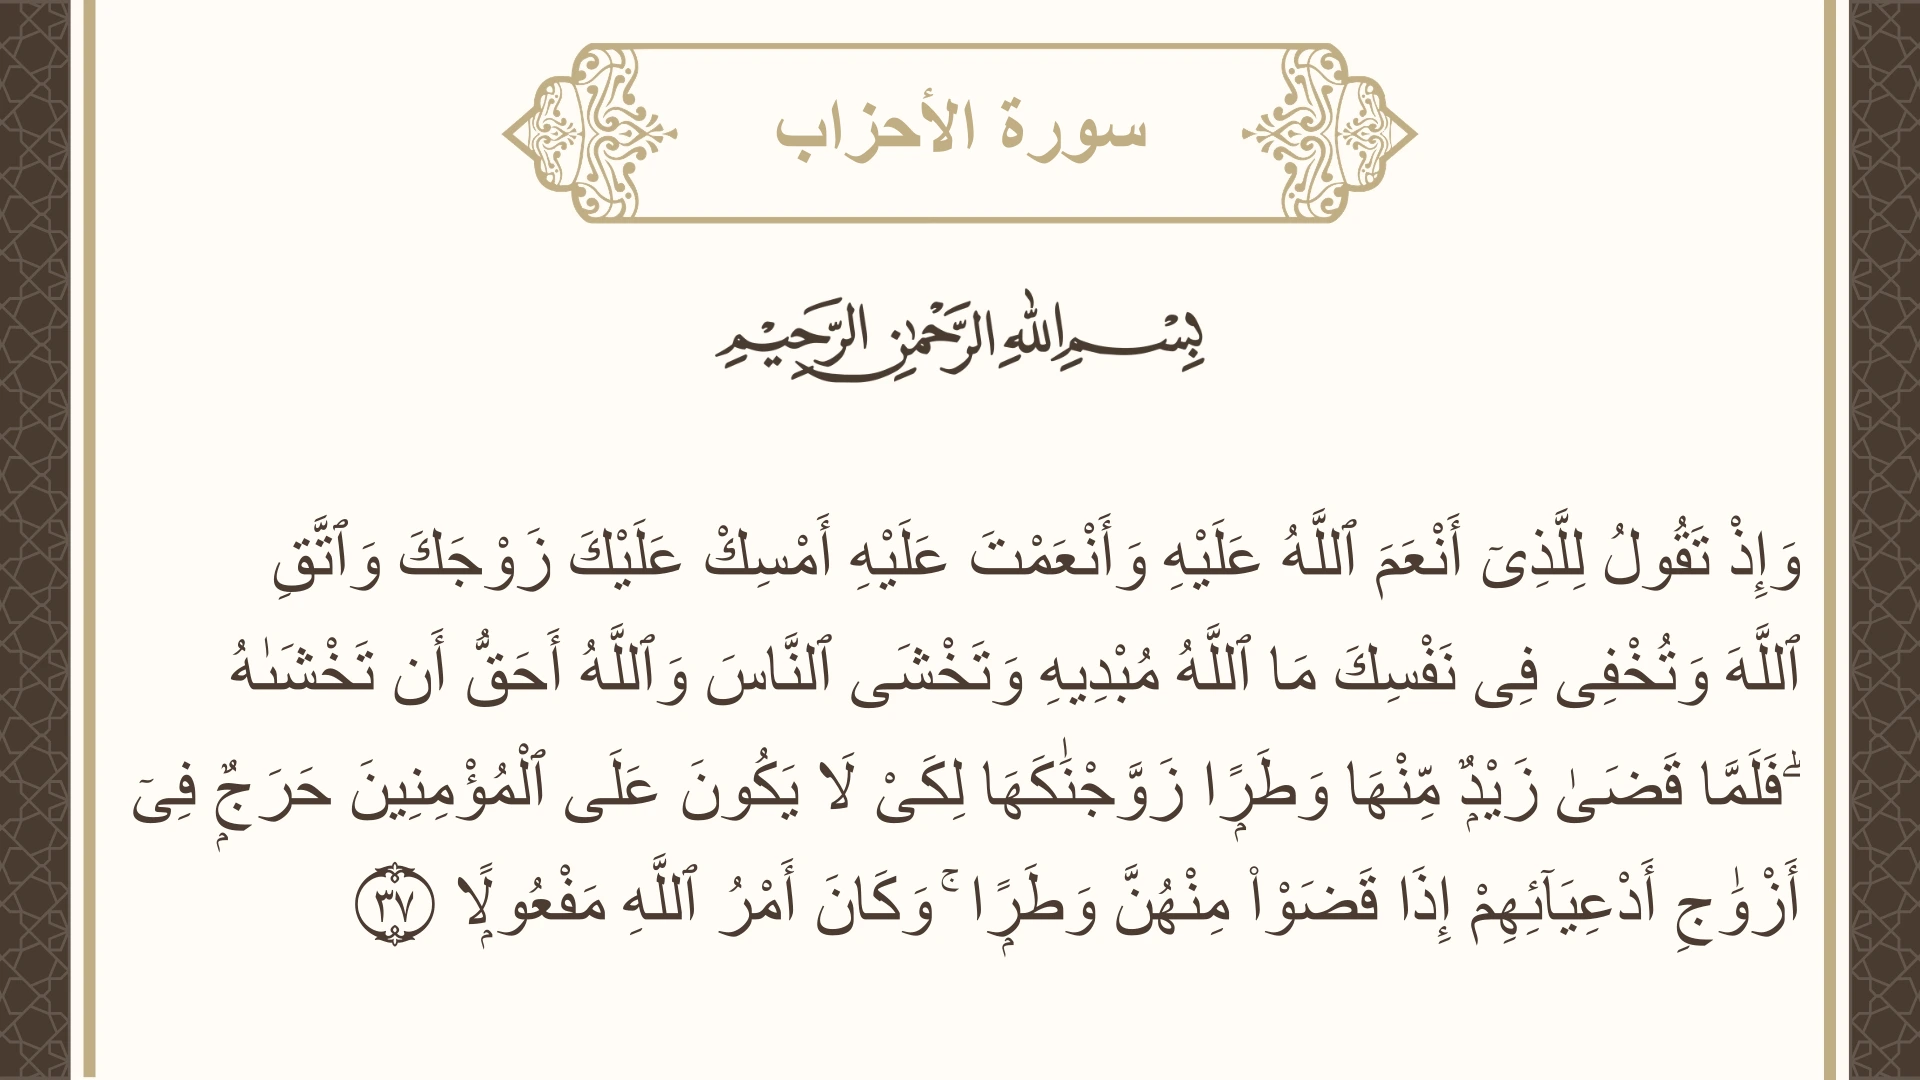 سورة الأحزاب
بِسْمِ اللهِ الرَّحْمٰنِ الرَّحِيْمِ
وَإِذْ تَقُولُ لِلَّذِىٓ أَنْعَمَ ٱللَّهُ عَلَيْهِ وَأَنْعَمْتَ عَلَيْهِ أَمْسِكْ عَلَيْكَ زَوْجَكَ وَٱتَّقِ
ٱللَّهَ وَتُخْفِى فِى نَفْسِكَ مَا ٱللَّهُ مُبْدِيهِ وَتَخْشَى ٱلنَّاسَ وَٱللَّهُ أَحَقُّ أَن تَخْشَىٰهُ
ۖ فَلَمَّا قَضَىٰ زَيْدٌۭ مِّنْهَا وَطَرًۭا زَوَّجْنَٰكَهَا لِكَىْ لَا يَكُونَ عَلَى ٱلْمُؤْمِنِينَ حَرَجٌۭ فِىٓ
أَزْوَٰجِ أَدْعِيَآئِهِمْ إِذَا قَضَوْا۟ مِنْهُنَّ وَطَرًۭا ۚ وَكَانَ أَمْرُ ٱللَّهِ مَفْعُولًۭا ٣٧